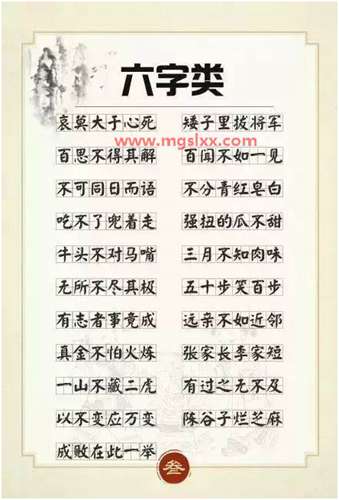 六字类
哀莫大于心死 矮子里拔将军
www.mgslxx.com
百思不得其解 百闻不如一见
不可同日而语 不分青红皂白
吃不了兜着走 强扭的瓜不甜
牛头不对马嘴 三月不知肉味
无所不尽其极 五十步笑百步
有志者事竟成 远亲不如近邻
真金不怕火炼 张家长李家短
一山不藏二虎 有过之无不及
以不变应万变 陈谷子烂芝麻
成败在此一举
叁